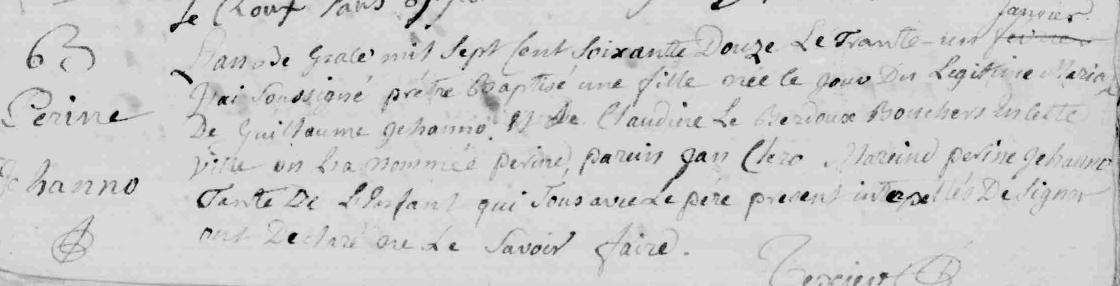 Le Cloux sans
janvier
63
L'an de Grace mil Sept Cent Soixante Douze Le Trante-un fevrier
J'ai Soussigné prêtre Baptisé une fille née le jour Du Legitime Maria
Perine
De Guillaume Jehanno, et de Claudine Le Berdoux Bouchers En Cette
Ville on L'a nommée perine, parain Jan Clero Mareine perine Jehanno
Jehanno
Tante De L'Enfant qui Tous avec Le pere present interpellés De Signer
ont Declaré ne Le Savoir faire.
Texier